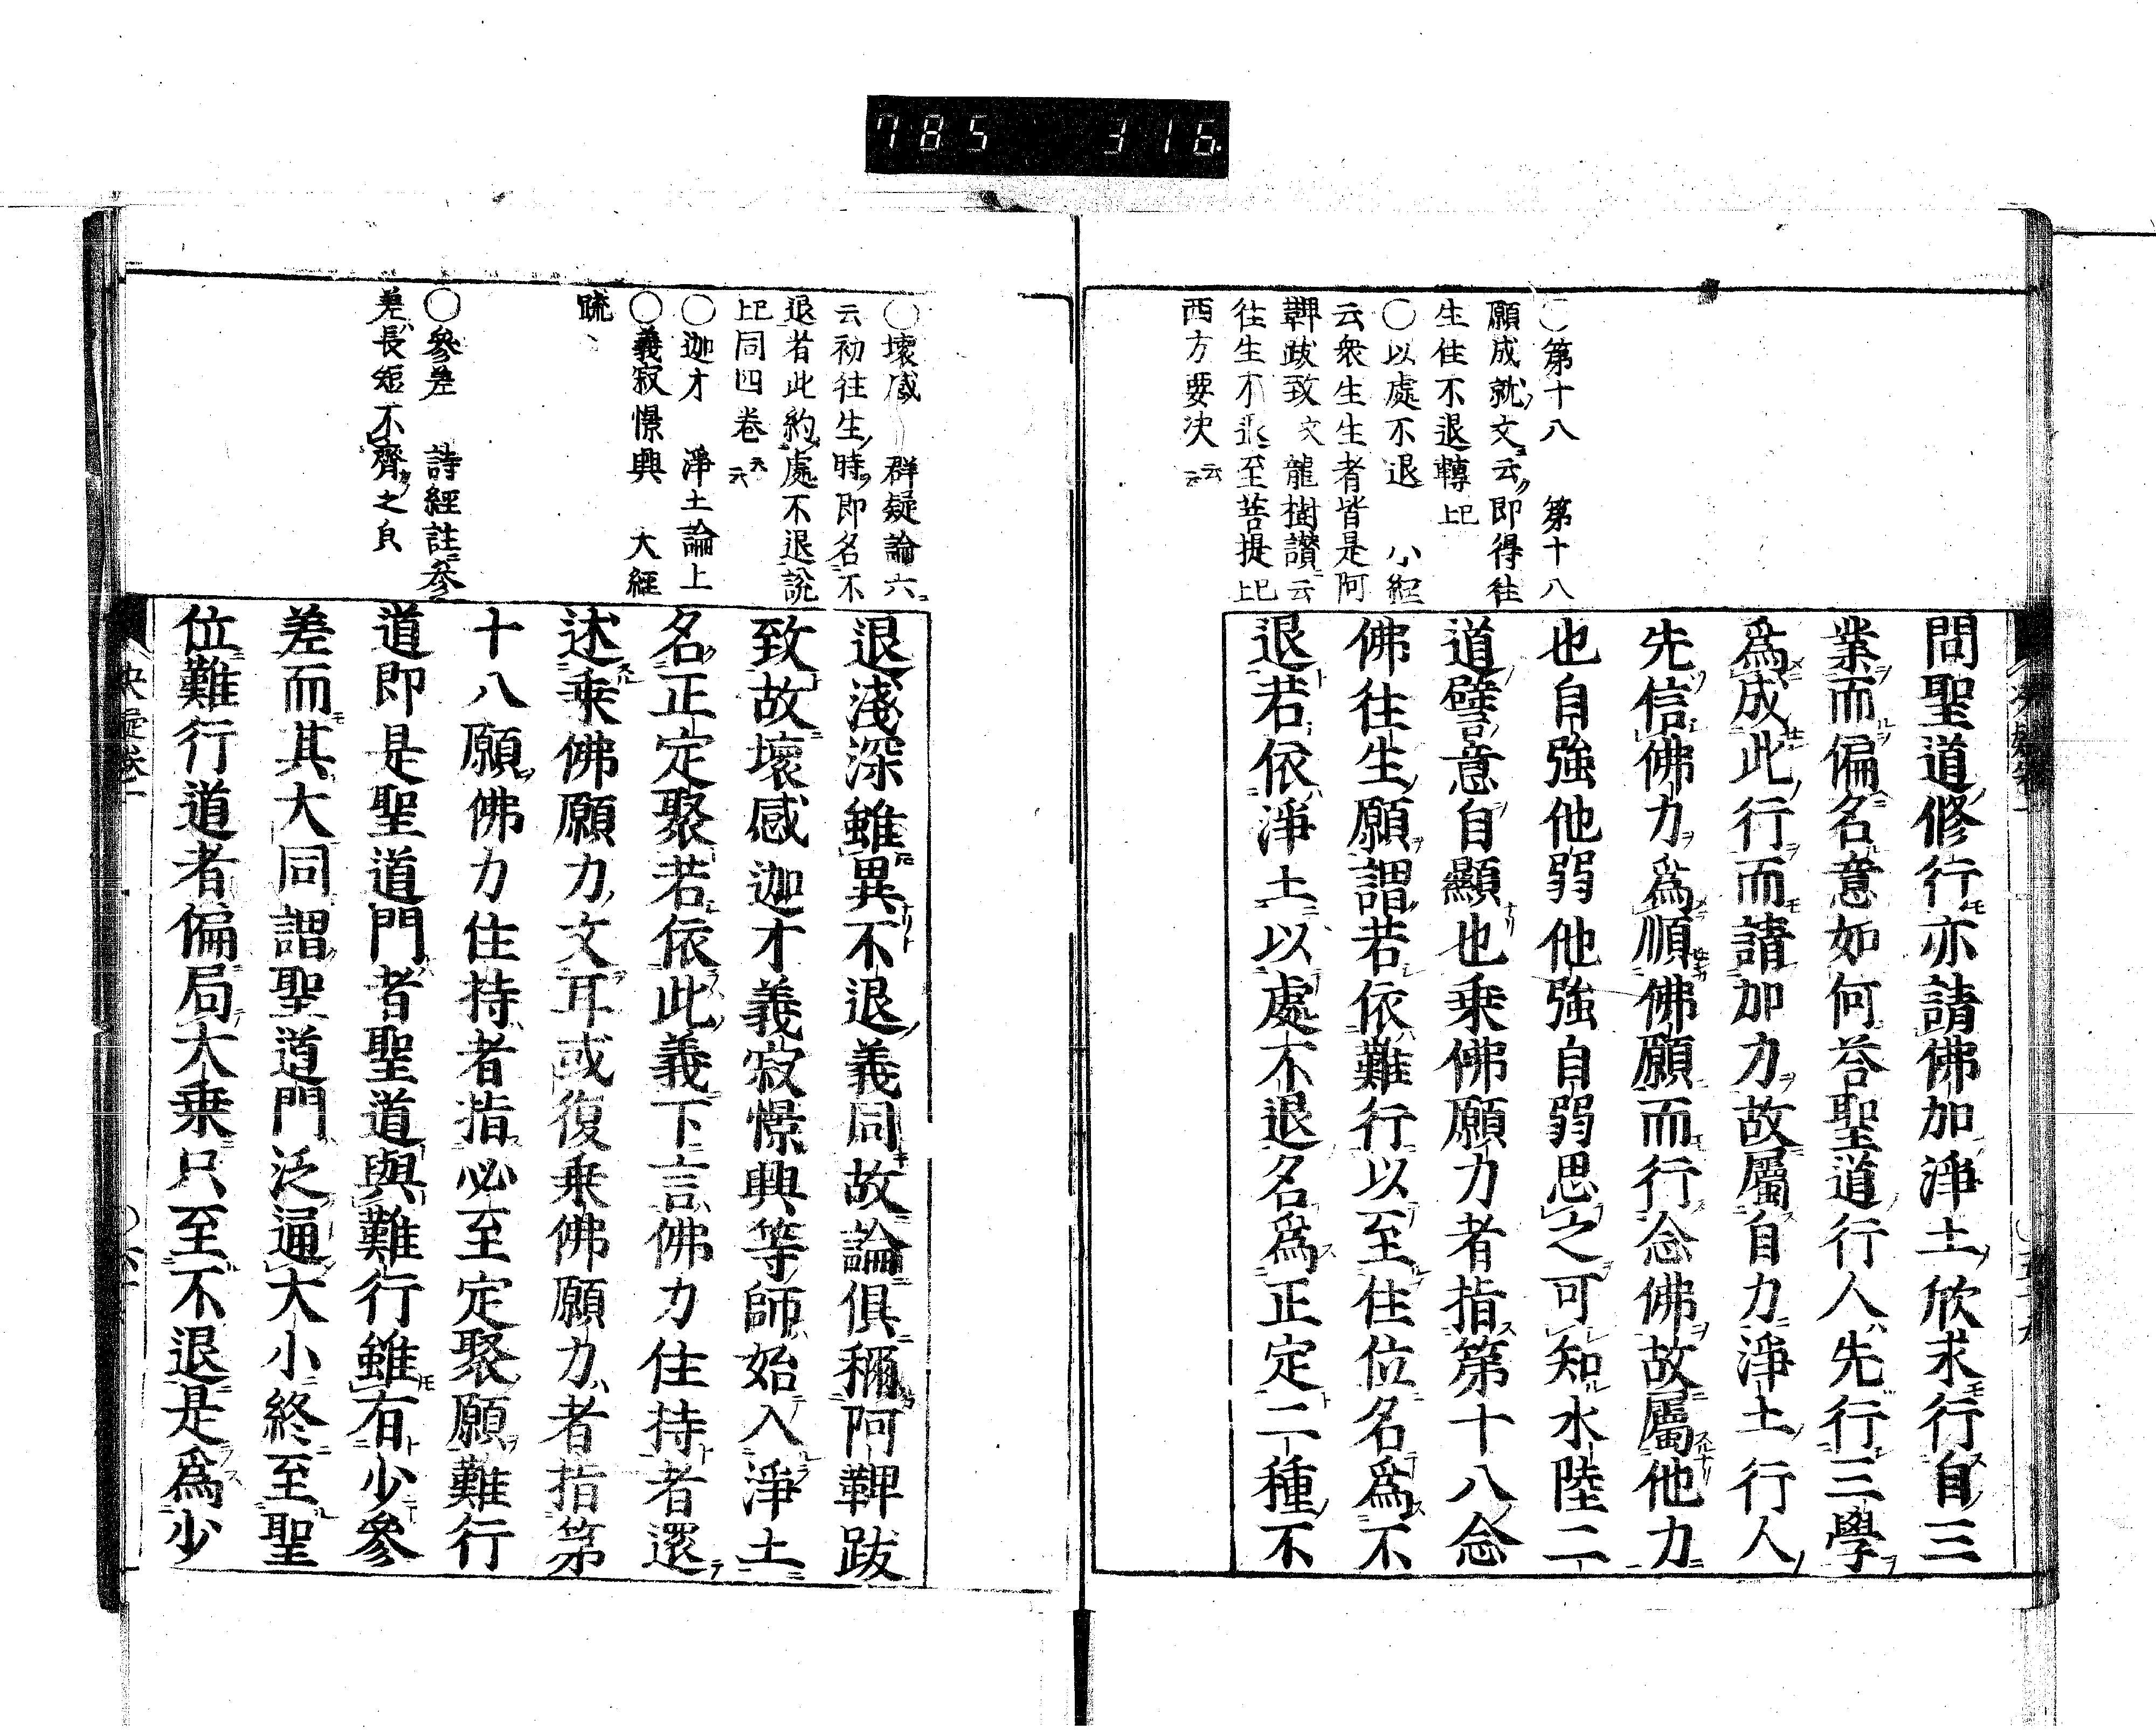 785 316
○第十八 第十八
願成就文云即得往
生住不退轉 上巳
○以處不退 小經
云衆生生者皆是阿
鞞跋致文龍樹讃云
往生不退至菩提 上巳
西方要决 云云
問聖道修行亦請佛加淨土欣求行自三
業而偏名意如何荅聖道行人先行三學
爲成此行而請加力故屬自力淨土行人
先信佛力爲順佛願而行念佛故屬他力
也自強他弱他強自弱思之可知水陸二
道譬意自顯也乗佛願力者指第十八念
佛往生願謂若依難行以至住位名爲不
退若依淨土以處不退名爲正定二種不
○懷感 群疑論六
云初往生時即名不
退者此約處不退說
上巳同四卷 云云
○迦才 淨土論上
○義寂憬興 大經
䟽
○參差 詩經註參
差長短不齊之㒵
退淺深雖異不退義同故論俱稱阿鞞跋
致故懷感迦才義寂憬興等師始入淨土
名正定聚若依此義下言佛力住持者還
述乗佛願力文耳或復乗佛願力者指第
十八願佛力住持者指必至定聚願難行
道即是聖道門者聖道與難行雖有少參
差而其大同謂聖道門泛通大小終至聖
位難行道者偏局大乗只至不退是爲少
決疑卷一